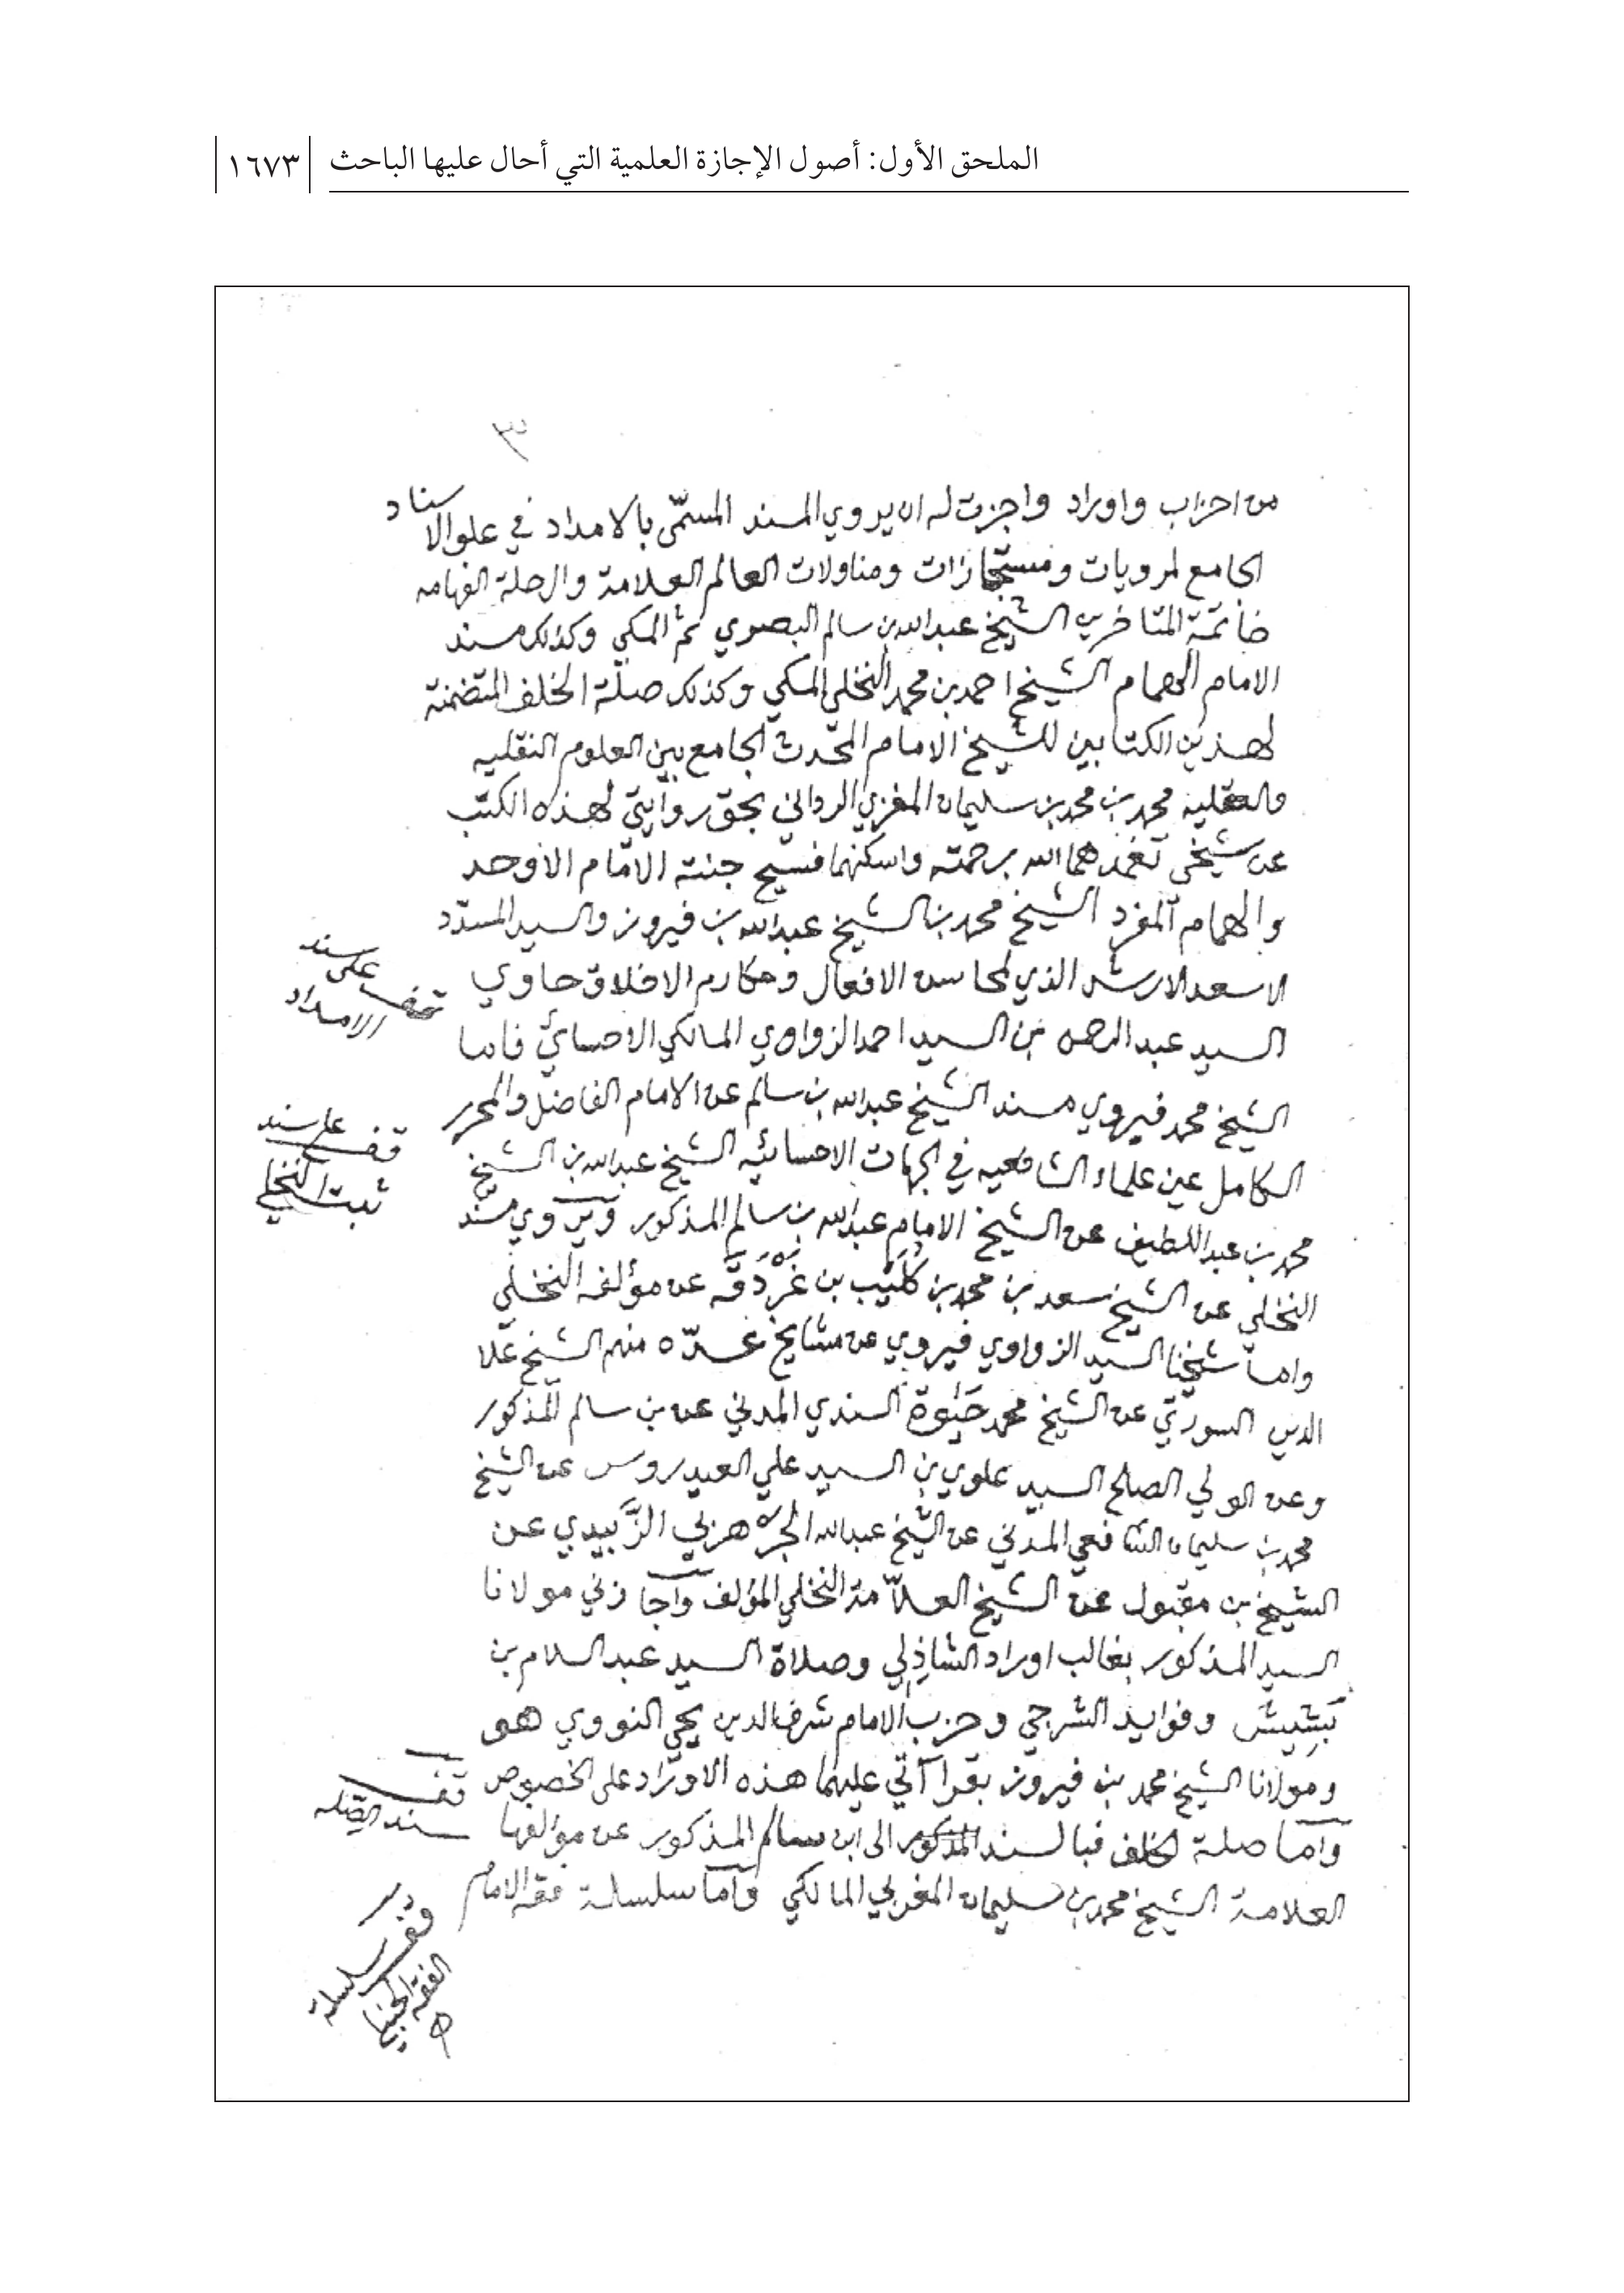 الملحق الأول: أصول الإجازة العلمية التي أحال عليها الباحث ١٦٧٣
٣
من احزاب واوراد واجزت له ان يروي المسند المسمّى بالامداد في علو الاسناد
الجامع لمرويات ومستجازات ومناولات العالم العلامة والرحلة الفهامه
خاتمة المتاخرين الشيخ عبدالله بن سالم البصري ثم المكي وكذلك مسند
الامام الهمام الشيخ احمد بن محمد النخلي المكي وكذلك صلة الخلف المتضمنة
لهذين الكتابين للشيخ الامام المحّدث الجامع بين العلوم النقليه
والعقليه محمد بن محمد بن سليمان المغربي الرداني بحق روايتي لهذه الكتب
عن شيخي تغمدهما الله برحمته واسكنهما فسيح جنته الامام الاوحد
والهمام المفرد الشيخ محمد بن الشيخ عبدالله بن فيروز والسيد المسدد
الاسعد الارشد الذي لمحاسن الافعال ومكارم الاخلاق حاوي
السيد عبدالرحمن بن السيد احمد الزواوي المالكي الاحسائي فاما
الشيخ محمد فيروي مسند الشيخ عبدالله بن سالم عن الامام الفاضل والمحرر
الكامل عين علماء الشافعيه في الجهات الاحسائيه الشيخ عبدالله بن الشيخ
محمد بن عبداللطيف عن الشيخ الامام عبدالله بن سالم المذكور ويروي مسند
النخلي عن الشيخ سعد بن محمد بن كليب بن غردقه عن مؤلفه النخلي
واما شيخنا السيد الزواوي فيروي عن مشايخ عدّه منهم الشيخ علا
الدين السورتي عن الشيخ محمد حيوة السندي المدني عن بن سالم المذكور
وعن الولي الصالح السيد علوي بن السيد علي العيدروس عن الشيخ
محمد بن سليمان الشافعي المدني عن الشيخ عبدالله الجرهزي الزَّبيدي عن
الشيخ بن مقبول عن الشيخ العلاّمة النخلي المؤلف واجازني مولانا
السيد المذكور بغالب اوراد الشاذلي وصلاة السيد عبدالسلام بن
بشيش وفوايد الشرجي وحزب الامام شرف الدين يحيى النووي هو
ومولانا الشيخ محمد بن فيروز بقراآتي عليهما هذه الاوراد على الخصوص
وآما صلة الخلف فبالسند المذكور الى ابن سالم المذكور عن مؤلفها
العلامة الشيخ محمد بن سليمان المغربي المالكي وآما سلسلة فقه الامام
قف على سند
الامداد
قف على سند
ثبت النخلي
قف
سند الصّله
وقف
سلسلة
الفقه